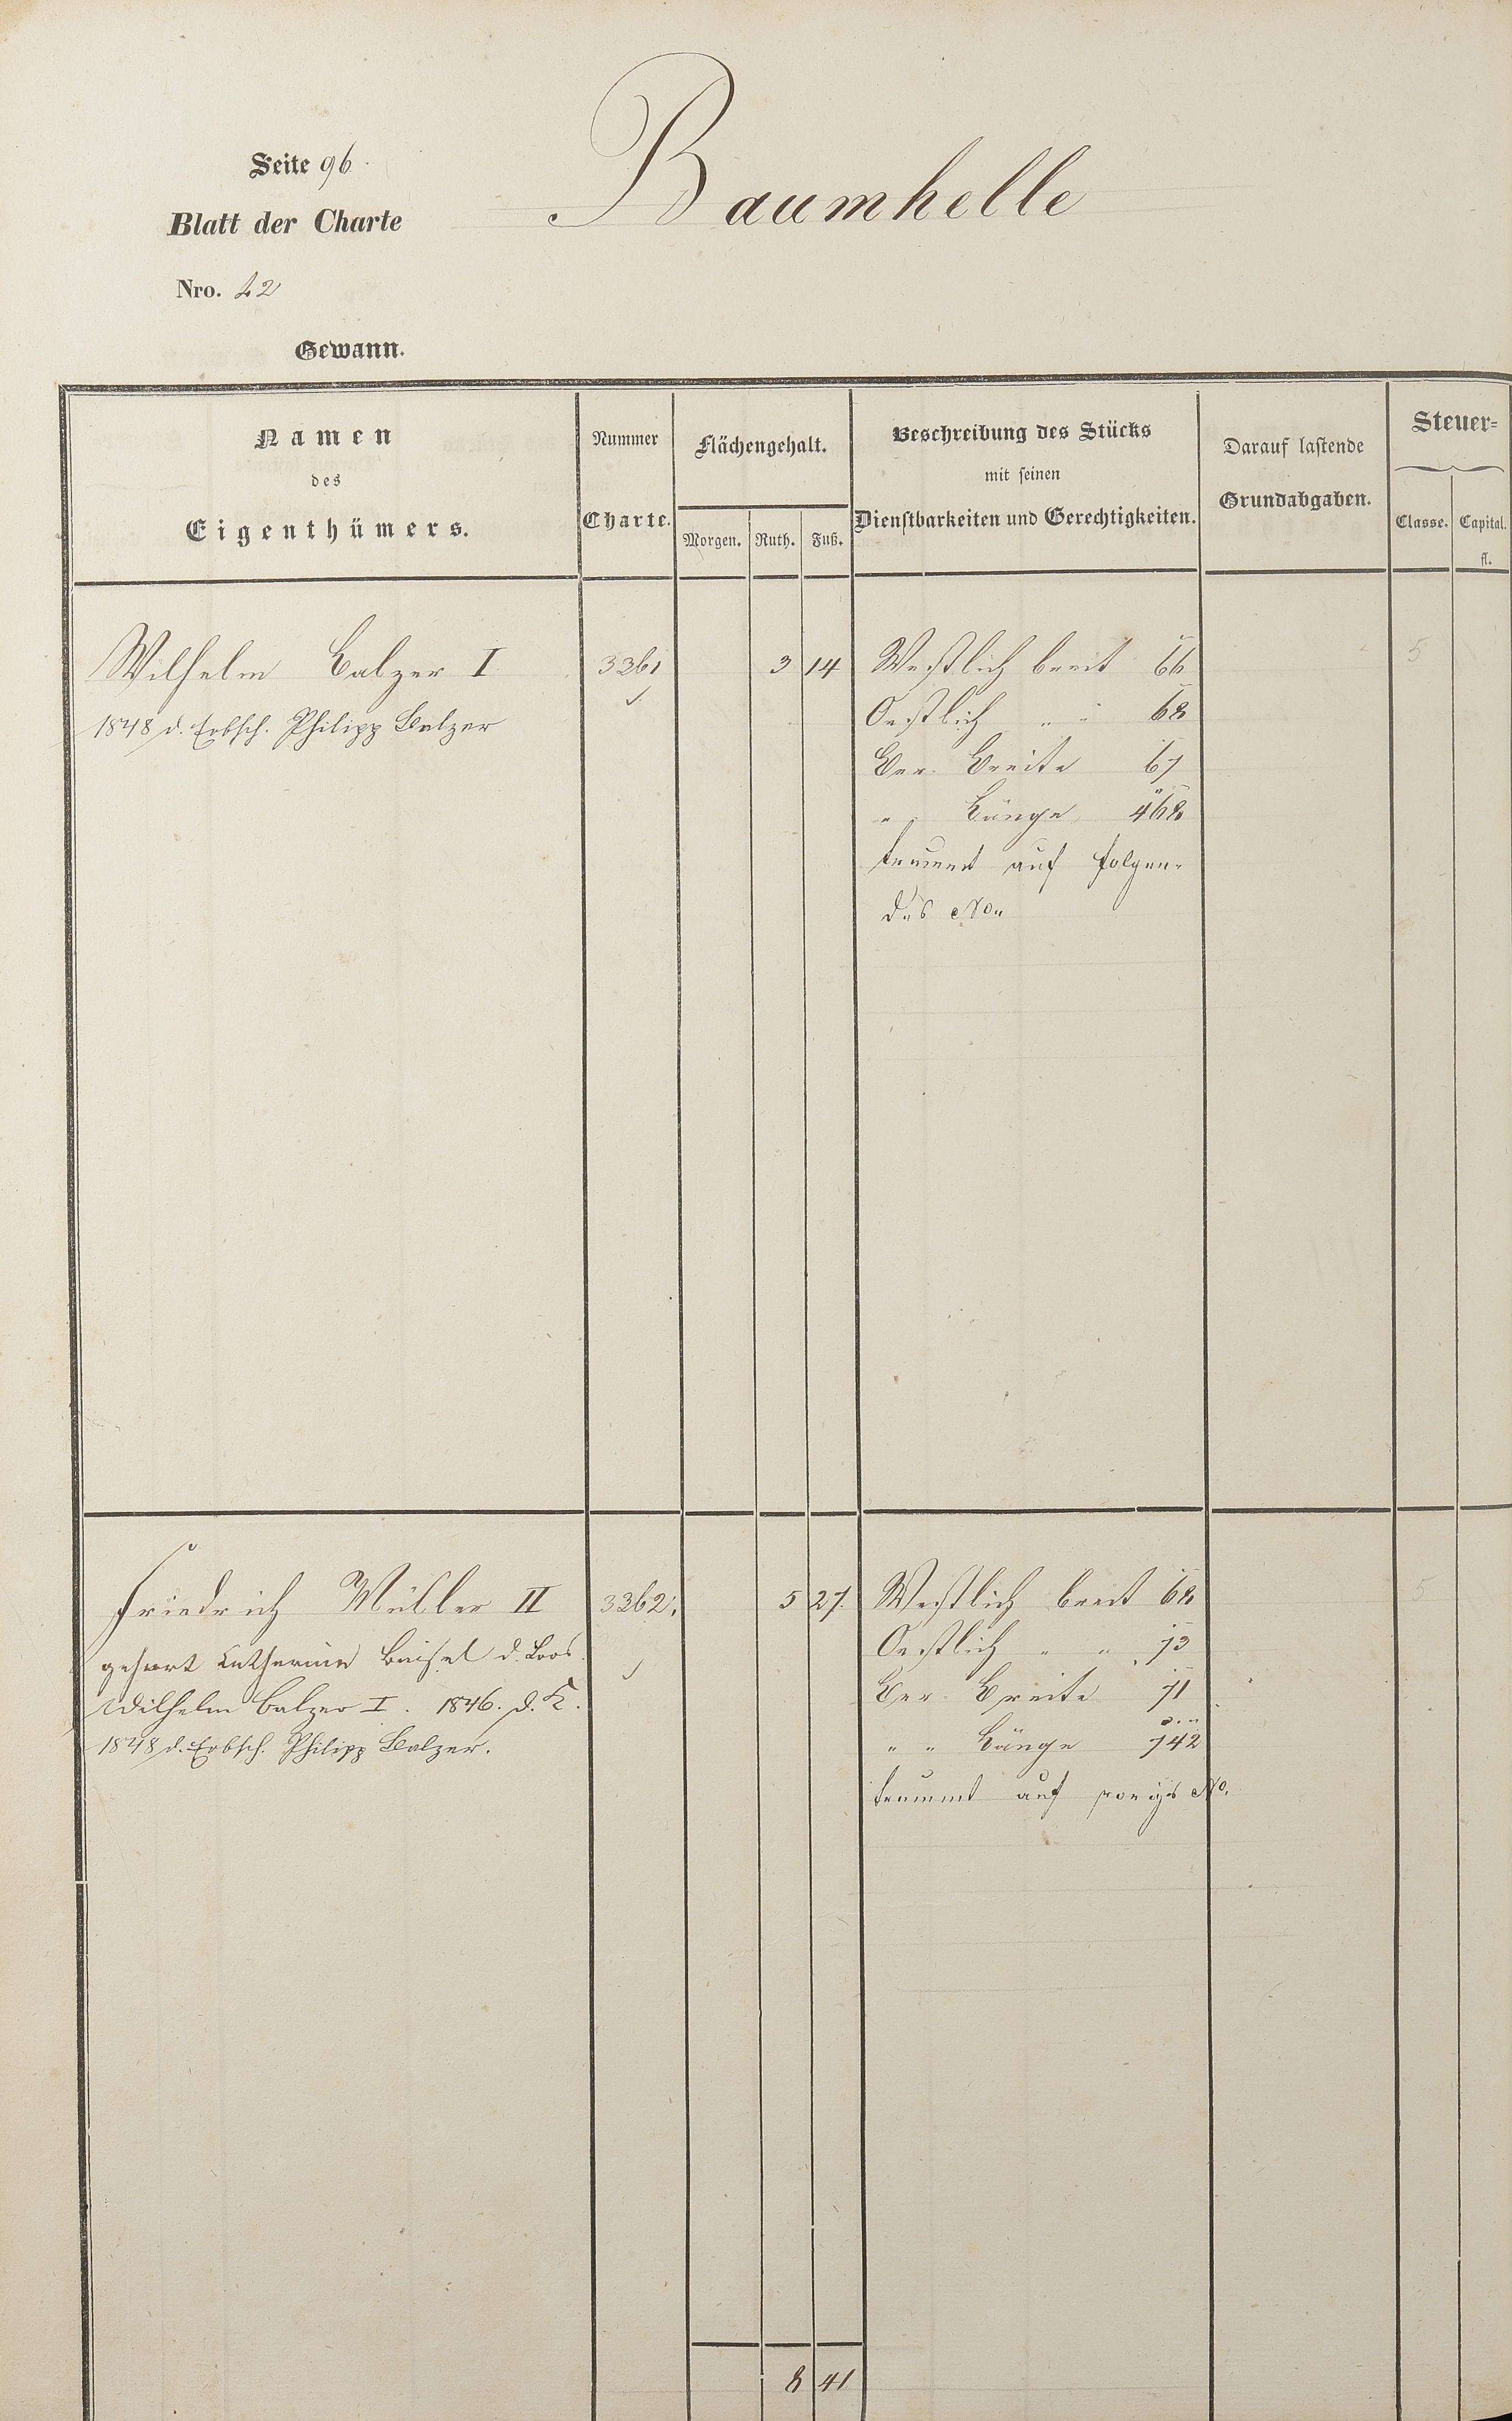 Seite 96.
Baumhelle
Blatt der Charte
Nro. 42
Gewann.
Namen
des
Eigenthümers.
Nummer
Charte.
Flächengehalt.
Morgen. Ruth. Fuß.
Beschreibung des Stücks
mit seinen
Dienstbarkeiten und Gerechtigkeiten.
Darauf lastende
Grundabgaben.
Steuer=
Classe. Capital.
fl.
Wilhelm Balzer I 3361 3 14 Westlich breit 66 5
1848 d. Erbsch. Philipp Balzer
Oestlich " " 68
Ver. Breite 67
" " Länge 468
auf folgen-
des No.
Friedrich Müller II 3362. 5 27. Westlich breit 68 5
gehört Catharina d. Loos
Oestlich " " 73
Wilhelm Balzer I. 1846. d. K.
Ver. Breite 71
1848 d. Erbsch. Philipp Balzer.
" " Länge 742
auf voriges No.
8 41